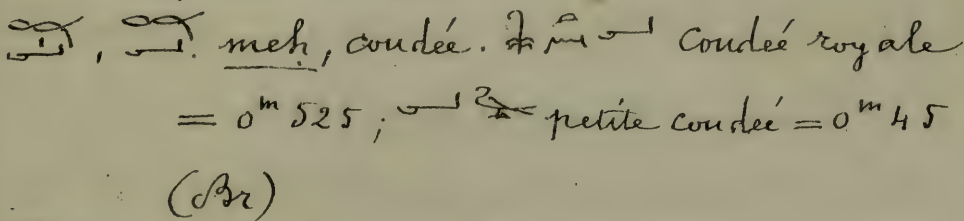 , . meh, coudée. Coudée royale
= 0ᵐ 525 ; petite coudée = 0ᵐ 45
(Br)